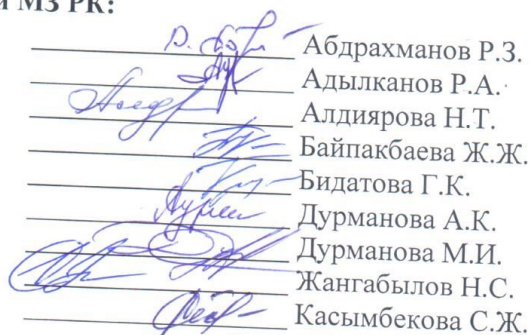 МЗ РК:
Абдрахманов Р.З.
Адылканов Р.А.
Алдиярова Н.Т.
Байпакбаева Ж.Ж.
Бидатова Г.К.
Дурманова А.К.
Дурманова М.И.
Жангабылов Н.С.
Касымбекова С.Ж.